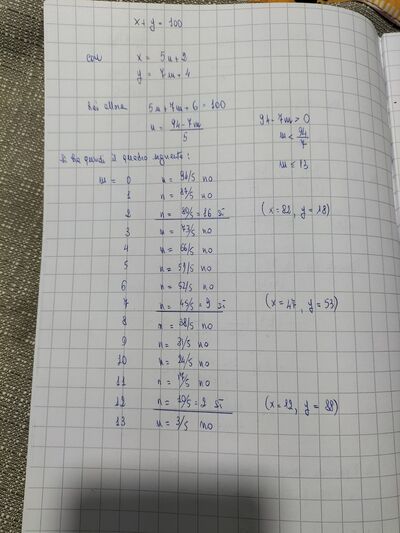 x + y = 100
con x = 5n + 2
y = 7m + 4
allora 5n + 7m + 6 = 100
n = 94 - 7m / 5
94 - 7m > 0
m < 94/7
m ≤ 13
Si ha quindi il quadro seguente:
m = 0 n = 94/5 no
1 n = 87/5 no
2 n = 80/5 = 16 sì (x = 82, y = 18)
3 n = 73/5 no
4 n = 66/5 no
5 n = 59/5 no
6 n = 52/5 no
7 n = 45/5 = 9 sì (x = 47, y = 53)
8 n = 38/5 no
9 n = 31/5 no
10 n = 24/5 no
11 n = 17/5 no
12 n = 10/5 = 2 sì (x = 12, y = 88)
13 n = 3/5 no